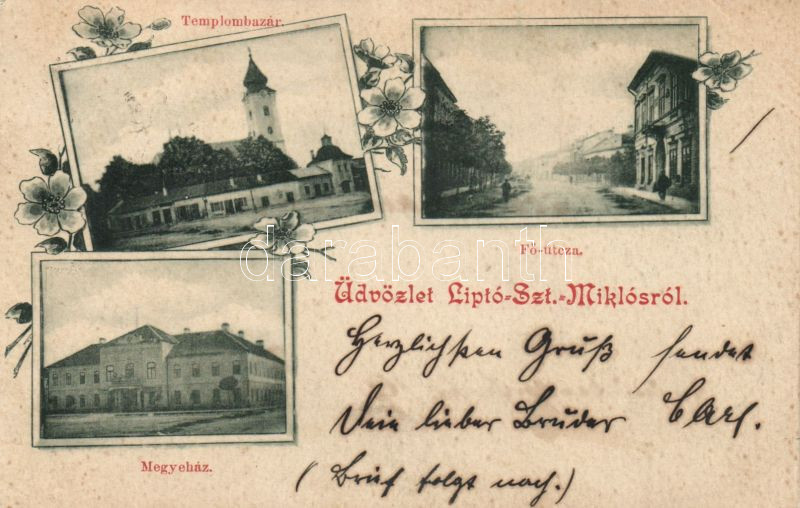 Templombazár.
Fő-utcza.
Üdvözlet Liptó-Szt.-Miklósról.
Megyeház.
darabanth
Herzlichsten Gruß sendet
Dein lieber Bruder Carl.
(Brief folgt noch.)